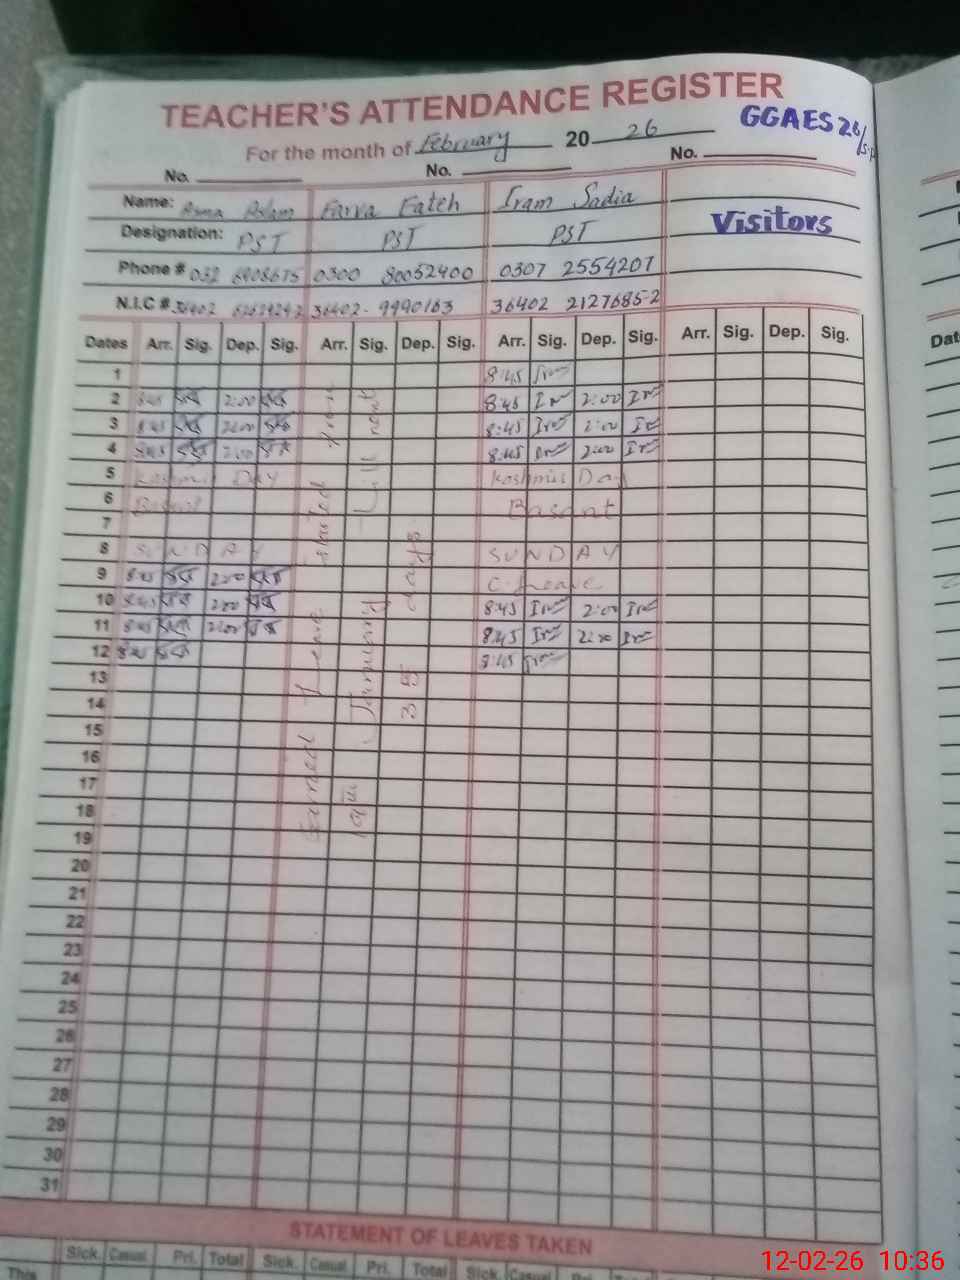 TEACHER'S ATTENDANCE REGISTER
GGAES 26/S.P
For the month of February 20 26
No. No. No.
Name: Asma Aslam Farva Fateh Iram Sadia
Designation: PST PST PST Visitors
Phone # 032 6908675 0300 80052400 0307 2554207
N.I.C # 36402 36402-9990163 36402 2127685-2
Dates Arr. Sig. Dep. Sig. Arr. Sig. Dep. Sig. Arr. Sig. Dep. Sig. Arr. Sig. Dep. Sig.
1 8:45
2 8:45 2:00 8:45 2:00
3 8:45 2:00 8:45 2:00
4 8:45 2:00 8:45 2:00
5 Kashmir Day Kashmir Day
6 Basant Basant
7
8 SUNDAY SUNDAY
9 8:45 2:00 C. Leave
10 8:45 2:00 8:45 2:00
11 8:45 2:00 8:45 2:00
12 8:45 8:45
13
14
15
16
17
18
19
20
21
22
23
24
25
26
27
28
29
30
31
Earned Leave started from
January till next
35 days
STATEMENT OF LEAVES TAKEN
Sick. Casual. Pri. Total Sick. Casual. Pri. Total Sick. Casual
This
Dat
12-02-26 10:36